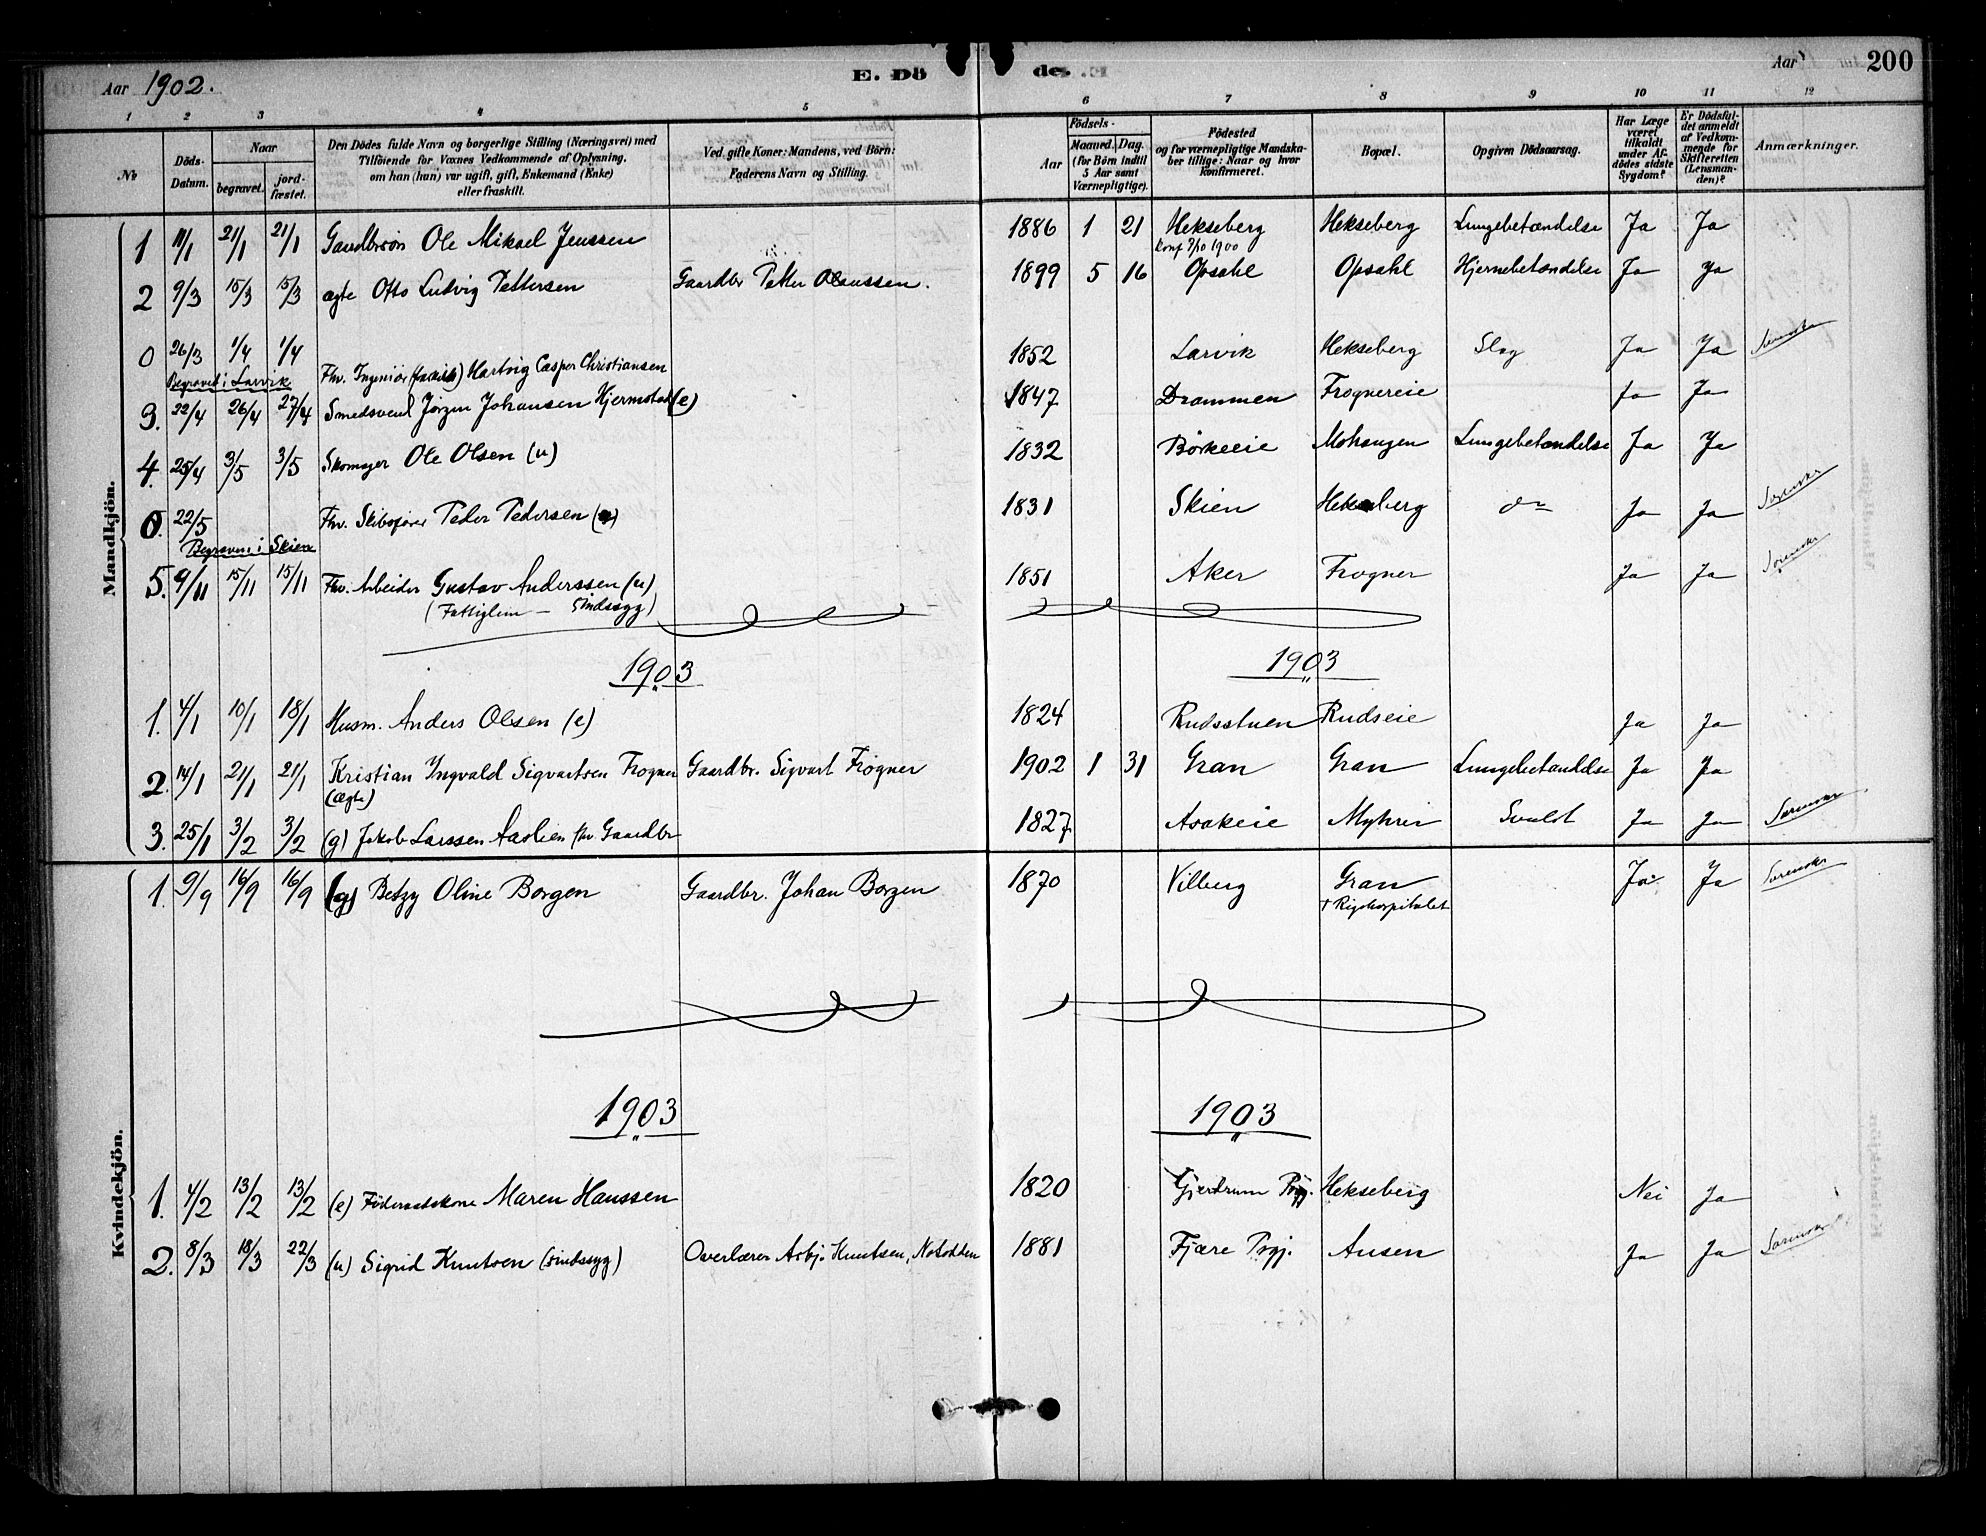 Aar 1902.
E. Dö
de. E
Aar
200
1 2 3 4 5 6 7 8 9 10 11 12
No
Döds-Datum.
Naar
begravet.
jord-fæstet.
Den Dödes fulde Navn og borgerlige Stilling (Næringsvei) med
Tilföiende for Voxnes Vedkommende af Oplysning,
om han (hun) var ugift, gift, Enkemand (Enke)
eller fraskilt.
Ved gifte Koner: Mandens, ved Börn:
Faderens Navn og Stilling.
Födsels-
Aar
Maaned.
Dag.
(for Börn indtil
5 Aar samt
Værnepligtige).
Födested
og for værnepligtige Mandska-
ber tillige: Naar og hvor
konfirmeret.
Bopæl.
Opgiven Dödsaarsag.
Har Læge
været
tilkaldt
under Af-
dödes sidste
Sygdom?
Er Dödsfal-
det anmeldt
af Vedkom-
mende for
Skifteretten
(Lensman-
den)?
Anmærkninger.
Mandkjön.
1 11/1 21/1 21/1 Gaardbrsøn Ole Mikael Jenssen 1886 1 21 Hekseberg Hekseberg Lungebetændelse Ja Ja
Konf 7/10 1900
2 9/3 15/3 15/3 ægte Otto Ludvig Pettersen Gaardbr Petter Olaussen. 1899 5 16 Opsahl Opsahl Hjernebetændelse Ja Ja
0 26/3 1/4 1/4 Fhv. Ingeniør Hartvig Casper Christiansen 1852 Larvik Hekseberg Slag Ja Ja Sorenskr
Begravet i Larvik
3. 22/4 26/4 27/4 Smedsvend Jørgen Johansen Hjermstad (e) 1847 Drammen Frognereie Ja Ja
4. 25/4 3/5 3/5 Skomager Ole Olsen (u) 1832 Børkeeie Mohaugen Lungebetændelse Ja Ja
0. 22/5 Fhv. Skibsfører Peder Pedersen 1831 Skien Hekseberg do Ja Ja Sorenskr
Begraven i Skien
5. 9/11 15/11 15/11 Fhv. Arbeider Gustav Anderssen (u) 1851 Aker Frogner Ja Ja Sorenskr
(Fattiglem - Sindssyg)
1903 1903
1. 4/1 10/1 18/1 Husm. Anders Olsen (e) 1824 Rudsstuen Rudseie Ja Ja
2. 14/1 21/1 21/1 Kristian Ingvald Sigvartsen Frogner Gaardbr. Sigvart Frogner 1902 1 31 Gran Gran Lungebetændelse Ja Ja
(ægte)
3. 25/1 3/2 3/2 (g) Jakob Larssen Aaslien fhv Gaardbr 1827 Asakeie Myhrer Svulst Ja Ja Sorenskr
Kvindekjön.
1. 9/9 16/9 16/9 (g) Betzy Oline Borgen Gaardbr. Johan Borgen 1870 Vilberg Gran Ja Ja Sorenskr
+ Rigshospitalet
1903 1903
1. 4/2 13/2 13/2 (e) Føderaadskone Maren Hanssen 1820 Gjerdrum Prgj. Hekseberg Nei Ja
2. 8/3 18/3 22/3 (u) Sigrid Knutsen (sindssyg) Overlærer Asbj. Knutsen, Notodden 1881 Fjære Prgj. Ausen Ja Ja Sorenskr